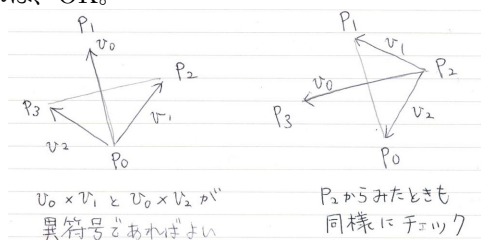 は、OK。
P₁
v₀
P₂
P₃
v₁
v₂
P₀
v₀ × v₁ と v₀ × v₂ が
異符号であればよい
P₁
v₁
P₂
v₀
P₃
v₂
P₀
P₂からみたときも
同様にチェック